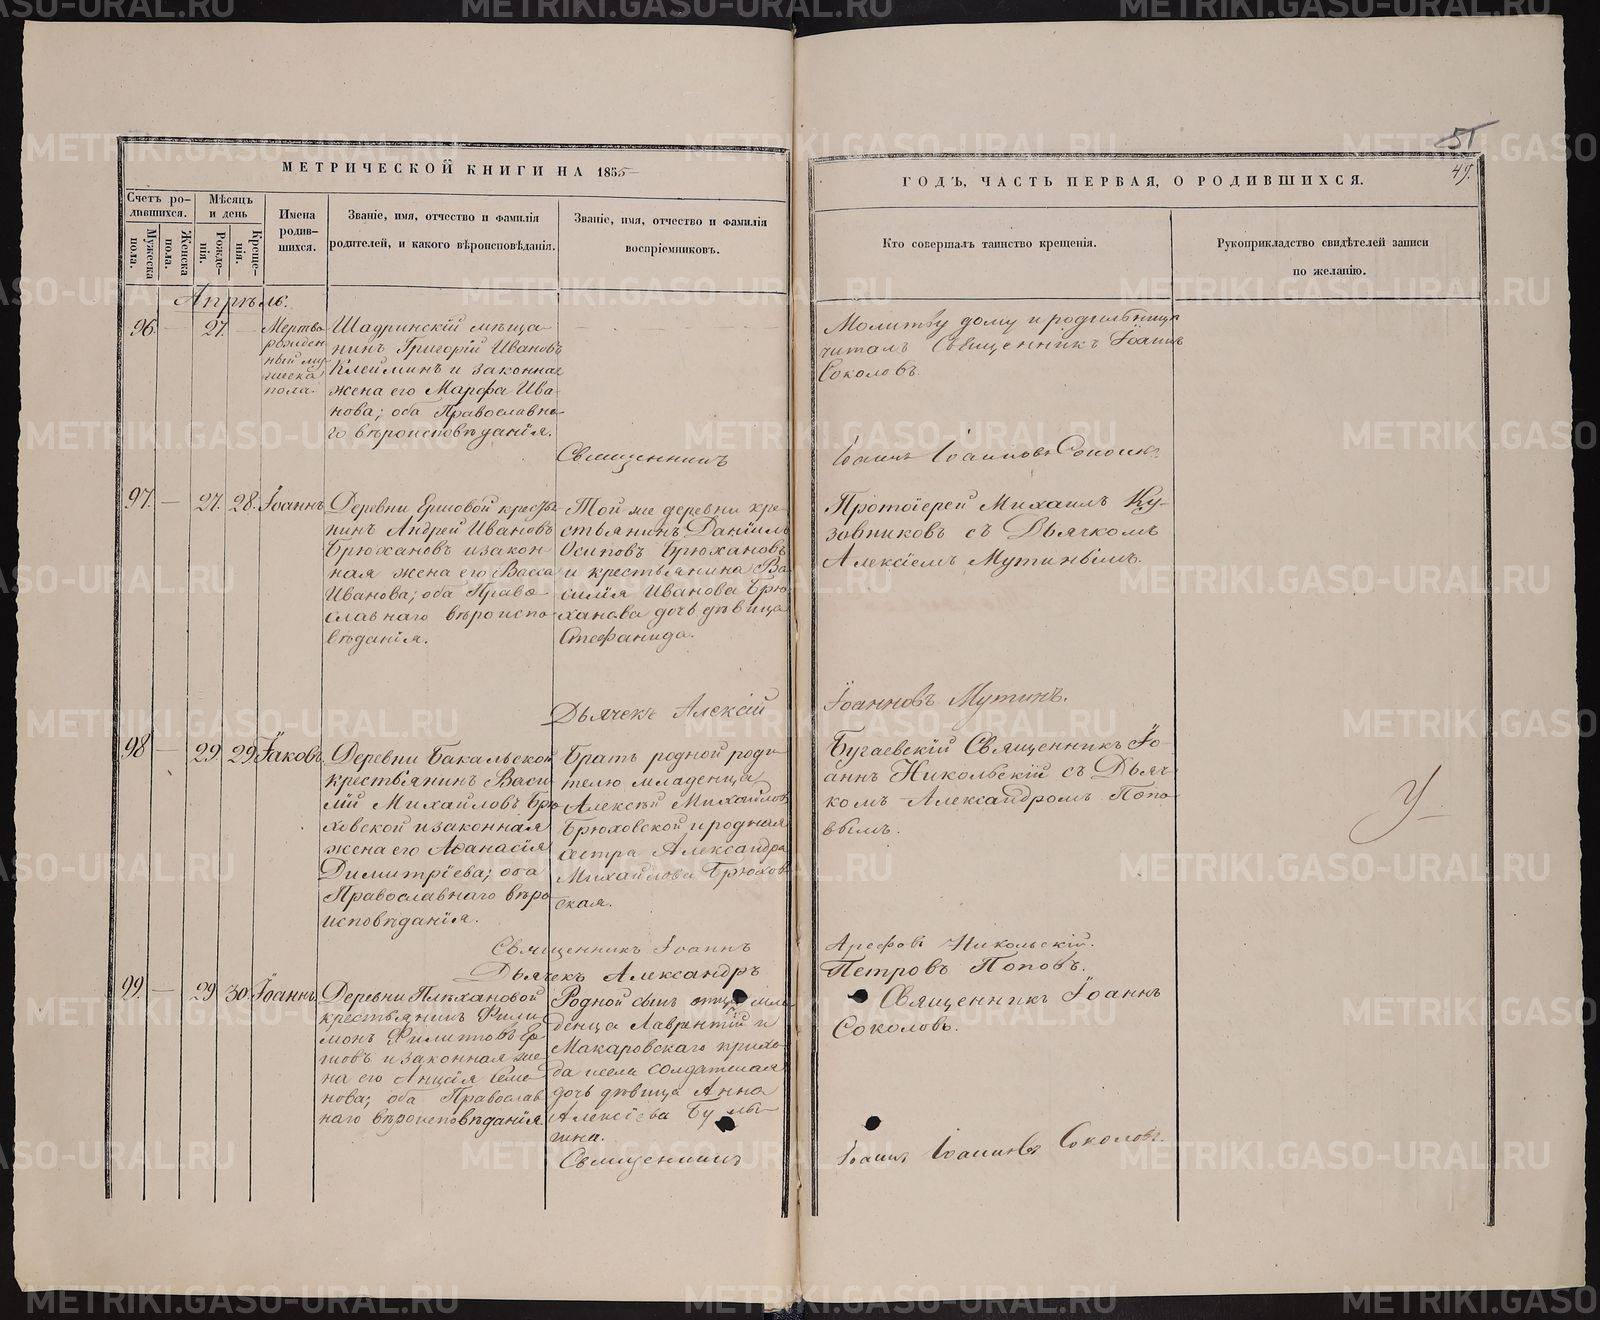 51
49.
МЕТРИЧЕСКОЙ КНИГИ НА 1855
ГОДЪ, ЧАСТЬ ПЕРВАЯ, О РОДИВШИХСЯ.
Счетъ ро-
дившихся.
Мужеска
пола.
Женска
пола.
Мѣсяцъ
и день
Рожде-
нія.
Креще-
нія.
Имена
родив-
шихся.
Званіе, имя, отчество и фамилія
родителей, и какого вѣроисповѣданія.
Званіе, имя, отчество и фамилія
воспріемниковъ.
Кто совершалъ таинство крещенія.
Рукоприкладство свидѣтелей записи
по желанію.
Апрѣль.
96. — 27. —
Мертво
рожден
ный му
жеска
пола.
Шадринскій мѣща-
нинъ Григорій Ивановъ
Клейминъ и законная
жена его Марфа Ива-
нова; оба Православна-
го вѣроисповѣданія.
Молитву дому и родильницѣ
читалъ Священникъ Іоаннъ
Соколовъ
Священникъ Іоаннъ Іоанновъ Соколовъ
97. — 27. 28. Іоаннъ
Деревни Ершовой кресть
нинъ Андрей Ивановъ
Брюхановъ и закон-
ная жена его Васса
Иванова; оба Право-
славнаго вѣроиспо-
вѣданія.
Той же деревни кре-
стьянинъ Даніилъ
Осиповъ Брюхановъ
и крестьянина Ва
силія Иванова Брю
ханова дочь дѣвица
Стефанида.
Протоіерей Михаилъ Ку-
зовниковъ съ Дьячкомъ
Алексіемъ Мутинымъ.
Дьячекъ Алексій Іоанновъ Мутинъ.
98 — 29 29 Іаковъ
Деревни Бакальской
крестьянинъ Васи-
лій Михайловъ Брю
ховской и законная
жена его Аѳанасія
Димитріева; оба
Православнаго вѣро
исповѣданія.
Братъ родной роди-
телю младенца
Алексѣй Михайловъ
Брюховской и родная
сестра Александра
Михайлова Брюхов
ская.
Бугаевскій Священникъ Іо-
аннъ Никольскій съ Дьяч-
комъ Александромъ Попо-
вымъ.
У
Священникъ Іоаннъ Арефовъ Никольскій.
Дьячекъ Александръ Петровъ Поповъ.
99. — 29 30. Іоаннъ
Деревни Плѣхановой
крестьянинъ Фили-
монъ Филипповъ Ер
шовъ и законная же
на его Анисія Семе
нова; оба Православ
наго вѣроисповѣданія.
Родной сынъ отца мла
денца Лаврентій и
Макаровскаго прихо-
да села солдатская
дочь дѣвица Анна
Алексіева
Священникъ Іоаннъ
Соколовъ.
Священникъ Іоаннъ Іоанновъ Соколовъ.
METRIKI.GASO-URAL.RU